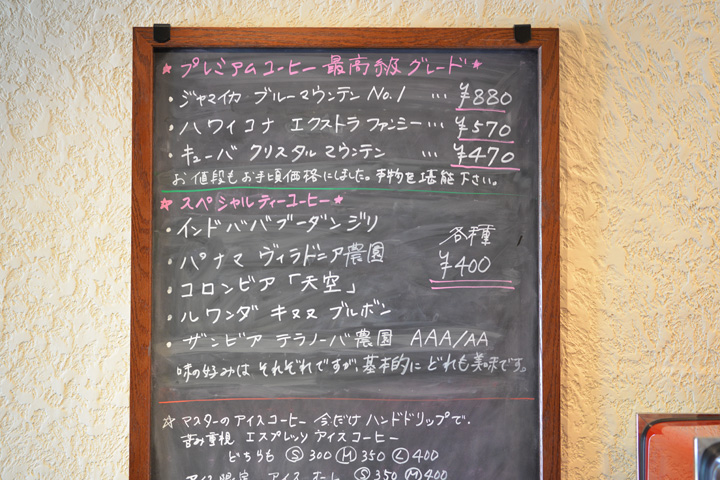 ☆プレミアムコーヒー 最高級 グレード☆
・ジャマイカ ブルーマウンテン No.1 … ¥880
・ハワイコナ エクストラファンシー… ¥570
・キューバ クリスタル マウンテン … ¥470
お値段もお手頃価格にしました。本物を堪能下さい。
☆スペシャルティーコーヒー☆
・インド ババブーダン ジリ
・パナマ ヴィラドニア農園
・コロンビア 「天空」
・ルワンダ キヌヌ ブルボン
・ザンビア テラノーバ農園 AAA/AA
各種
¥400
味の好みは それぞれですが、基本的に どれも美味です。
☆ マスターのアイスコーヒー 今だけ ハンドドリップで.
苦み重視 エスプレッソ アイスコーヒー
どちらも Ⓢ300 Ⓜ350 Ⓛ400
アイス Ⓢ350 Ⓜ400